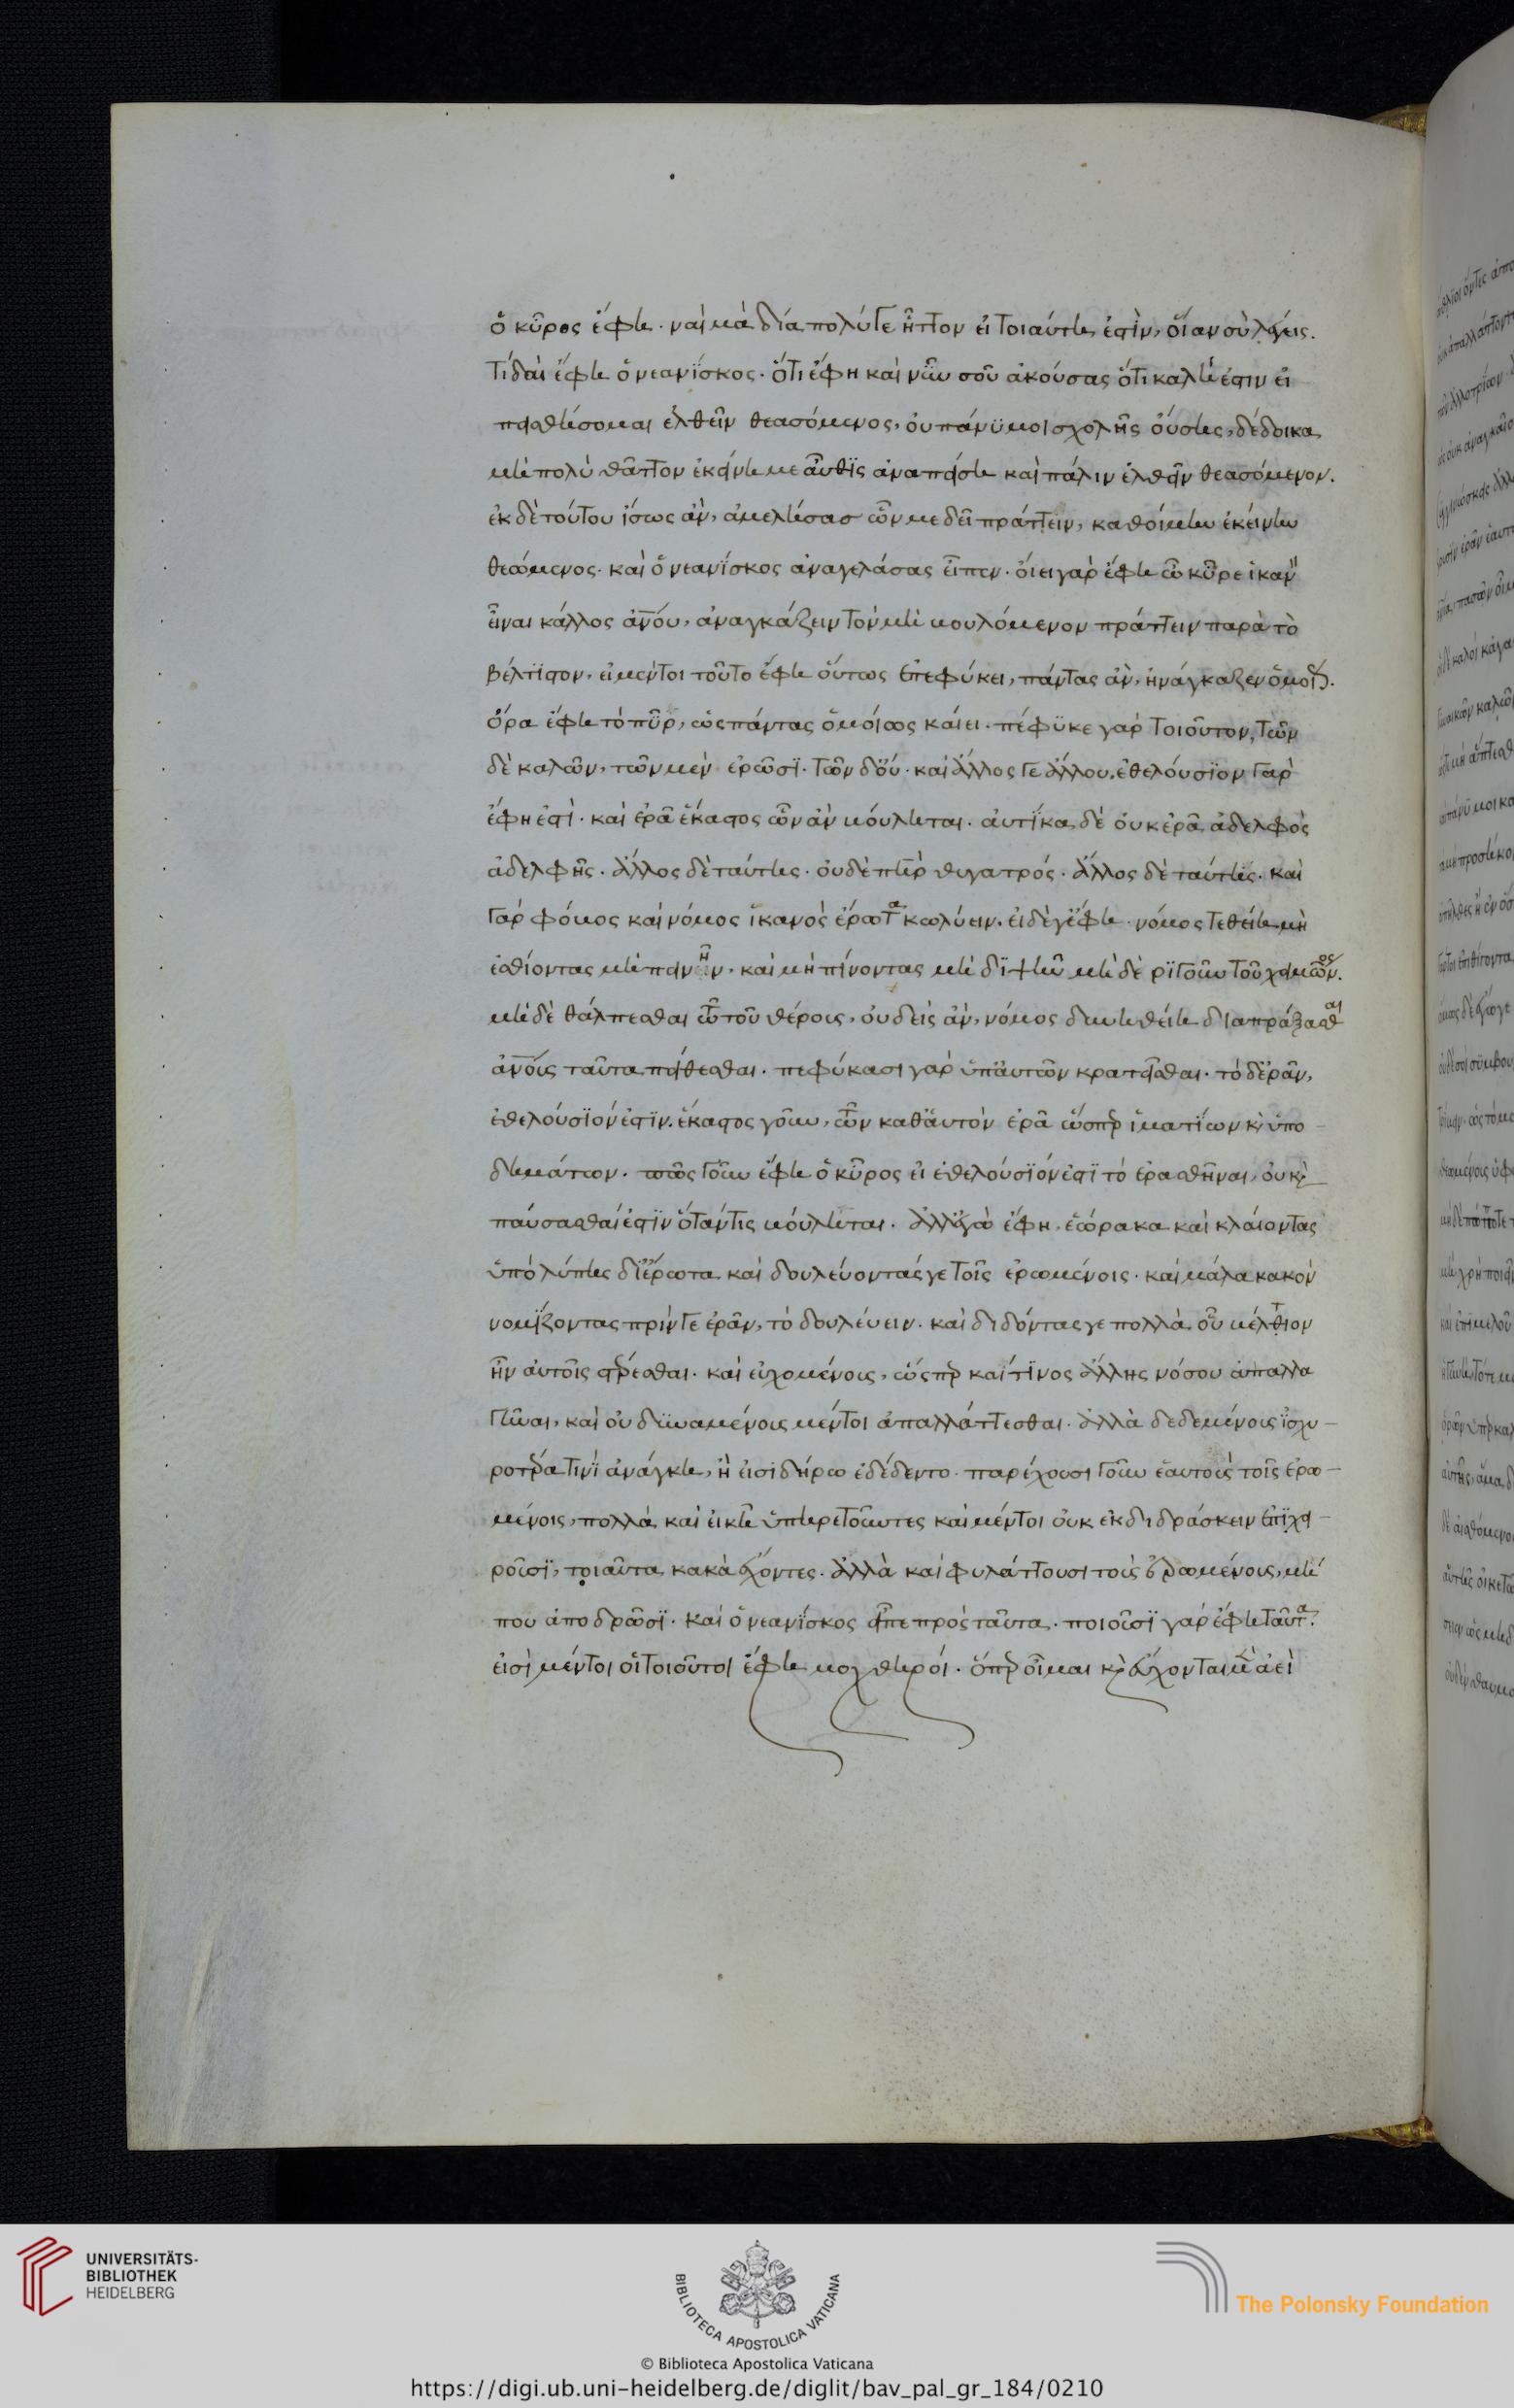 ὁ κῦρος ἔφη· ναὶ μὰ δία πολύ γε ἧττον εἰ τοιαύτη ἐστὶν, οἵαν σὺ λέγεις.
τί δαὶ ἔφη ὁ νεανΐσκος· ὅτι ἔφη καὶ νῦν σοῦ ἀκούσας ὅτι καλή ἐστιν εἰ
πεισθήσομαι ἐλθεῖν θεασόμενος, οὐ πάνϋ μοι σχολῆς οὔσης, δέδοικα
μὴ πολὺ θᾶττον ἐκείνη με αὖθϊς ἀναπείση καὶ πάλιν ἐλθεῖν θεασόμενον.
ἐκ δὲ τούτου ἴσως ἂν, ἀμελήσας ὧν με δεῖ πράττειν, καθοίμην ἐκείνην
θεώμενος· καὶ ὁ νεανΐσκος ἀναγελάσας εἶπεν· οἴει γάρ ἔφη ὦ κῦρε ἱκανὸν
εἶναι κάλλος ἀν̅ου, ἀναγκάζειν τὸν μὴ βουλόμενον πράττειν παρὰ τὸ
βέλτϊστον, εἰ μέντοι τοῦτο ἔφη οὕτως ἐπεφύκει, πάντας ἂν, ἠνάγκαζεν ὁμοίως.
ὅρα ἔφη τὸ πῦρ, ὡς πάντας ὁμοίως καίει· πέφϋκε γὰρ τοιοῦτον, τῶν
δὲ καλῶν, τῶν μὲν ἐρῶσϊ· τῶν δ' οὔ· καὶ ἄλλος γε ἄλλου. ἐθελούσϊον γὰρ
ἔφη ἐστὶ· καὶ ἐρᾶ ἕκαστος ὧν ἂν βούληται· αὐτΐκα δὲ οὐκ ἐρᾶ ἀδελφὸς
ἀδελφῆς· ἄλλος δὲ ταύτης· οὐδὲ πη̅ρ θυγατρός· ἄλλος δὲ ταύτης· καὶ
γὰρ φόβος καὶ νόμος ἱκανὸς ἔρωτα κωλύειν. εἰ δέ γ' ἔφη νόμος τεθείη μὴ
ἐσθίοντας μὴ πεινῆν, καὶ μὴ πίνοντας μὴ δϊψῆν μὴ δὲ ρϊγοῦν τοῦ χειμῶνος.
μὴ δὲ θάλπεσθαι τοῦ θέρους, οὐδεὶς ἂν, νόμος δυνηθείη διαπράξασθαι
ἀν̅οις ταῦτα πείθεσθαι· πεφύκασι γὰρ ὑπ' αὐτῶν κρατεῖσθαι· τὸ δ' ἐρᾶν,
ἐθελούσϊόν ἐστϊν. ἕκαστος γοῦν, τῶν καθ' αὑτὸν ἐρᾶ ὥσπερ ἱματΐων κὶ ὑπο-
δημάτων· πῶς γοῦν ἔφη ὁ κῦρος εἰ ἐθελούσϊόν ἐστϊ τὸ ἐρασθῆναι, οὐ κὶ
παύσασθαί ἐστϊν ὅταν τις βούληται. ἀλλ' ἐγὼ ἔφη. ἑώρακα καὶ κλαίοντας
ὑπὸ λύπης δι' ἔρωτα καὶ δουλεύοντάς γε τοῖς ἐρωμένοις· καὶ μάλα κακὸν
νομΐζοντας πρίν γε ἐρᾶν, τὸ δουλεύειν· καὶ διδόντας γε πολλὰ ὧν βέλτιον
ἦν αὐτοῖς στέρεσθαι· καὶ εὐχομένοις, ὥσπερ καί τϊνος ἄλλης νόσου ἀπαλλα
γῆναι, καὶ οὐ δυναμένοις μέντοι ἀπαλλάττεσθαι· ἀλλὰ δεδεμένοις ἰσχυ-
ροτέρα τινϊ ἀνάγκη, ἢ εἰ σιδήρω ἐδέδεντο· παρέχουσι γοῦν ἑαυτοὺς τοῖς ἐρω-
μένοις, πολλὰ καὶ εἰκῆ ὑπηρετοῦντες καὶ μέντοι οὐκ ἐκδιδράσκειν ἐπϊχει-
ροῦσϊ, τοιαῦτα κακὰ ἔχοντες. ἀλλὰ καὶ φυλάττουσι τοὺς ἐρωμένους, μή
που ἀποδρῶσϊ· καὶ ὁ νεανΐσκος εἶπε πρὸς ταῦτα· ποιοῦσϊ γὰρ ἔφη ταῦτα.
εἰσὶ μέντοι οἱ τοιοῦτοι ἔφη μοχθηροί· ὅπερ οἶμαι κὶ εὔχονται ἀεὶ
UNIVERSITÄTS-
BIBLIOTHEK
HEIDELBERG
BIBLIOTECA APOSTOLICA VATICANA
The Polonsky Foundation
© Biblioteca Apostolica Vaticana
https://digi.ub.uni-heidelberg.de/diglit/bav_pal_gr_184/0210